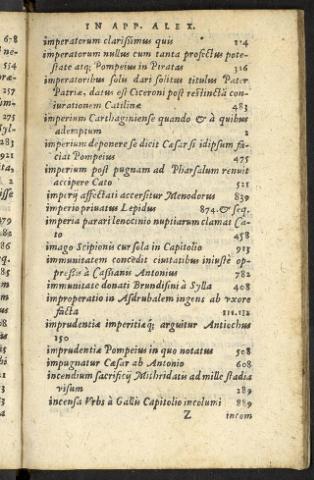 IN APP. ALEX.
imperatorum clarissimus quis 114
imperatorum nullus cum tanta profectus pote-
state atq; Pompeius in Piratas 316
imperatoribus solu dari solitus titulus Pater
Patriæ, datus est Ciceroni post restinctā con
iurationem Catilinæ 483
imperium Carthaginiense quando & à quibus
ademptum 2
imperium deponere se dicit Cæsar si idipsum fa-
ciat Pompeius 475
imperium post pugnam ad Pharsalum renuit
accipere Cato 521
imperij affectati accersitur Menodorus 839
imperio priuatus Lepidus 874. & seq.
imperia parari lenocinio nuptiarum clamat Ca-
to 458
imago Scipionis cur sola in Capitolio 913
immunitatem concedit ciuitatibus iniustè op-
pressis à Cassianis Antonius 782
immunitate donati Brundisini à Sylla 408
improperatio in Asdrubalem ingens ab vxore
facta 111.132
imprudentiæ imperitiæq; arguitur Antiochus
150
imprudentiæ Pompeius in quo notatus 508
impugnatur Cæsar ab Antonio 608
incendium sacrificij Mithridatis ad mille stadia
visum 289
incensa Vrbs à Gallis Capitolio incolumi 889
Z incom
678
ne-
554
præ-
257
im-
275
Syl-
283
921
ita-
2
isse
279
82
86
sq.
85
em
85
us
08
bi
51
83
33
4